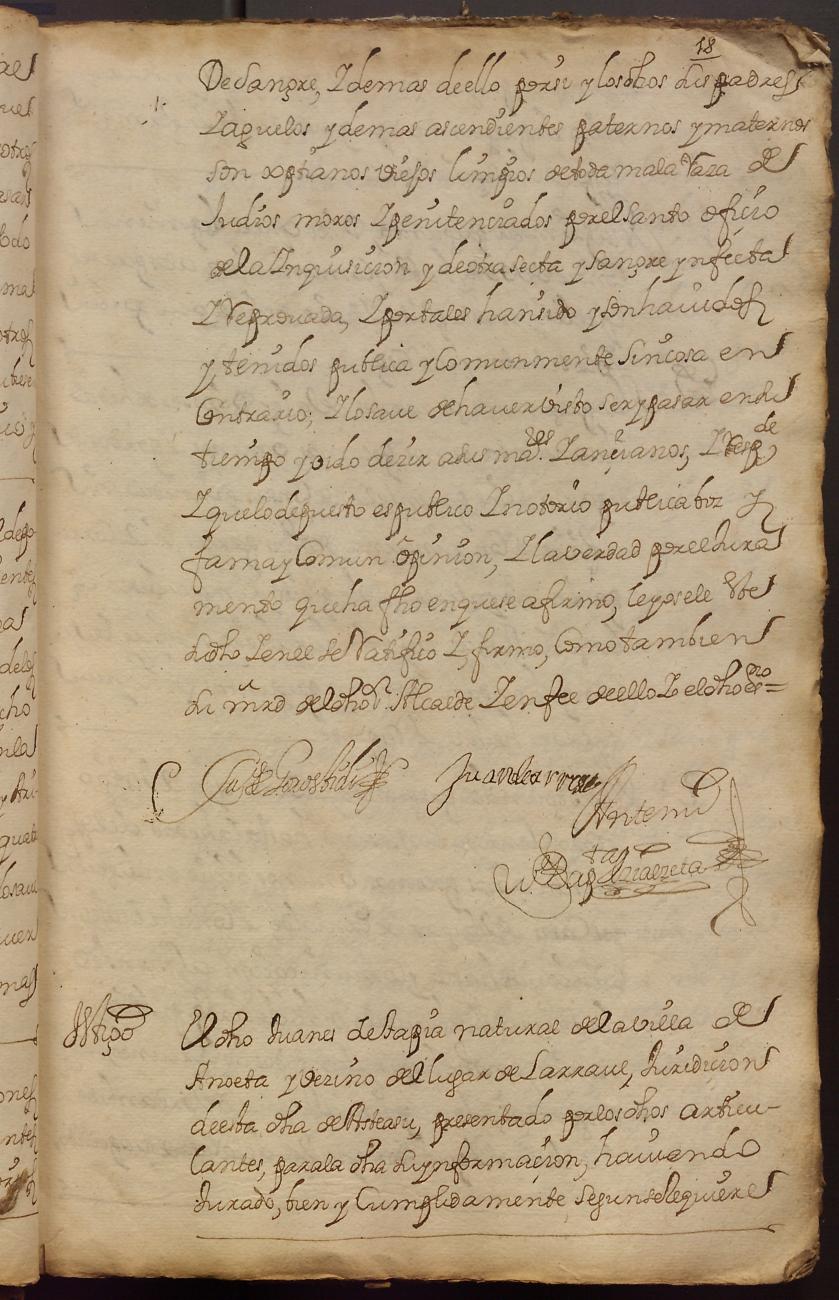 18
De Sangre, Y demas de ello por si y los dhos sus padres
Y aguelos y demas ascendientes paternos y maternos
son xptianos viejos limpios de toda mala Raza de
Judios moros Y penitenciados por el Santo oficio
de la Ynquisicion y de otra secta y sangre ynfecta
Y Reprovada, Y por tales han sido y son havidos
y tenidos publica y Comunmente sin cosa en
Contrario; Y lo save de haver visto ser y pasar en su
tiempo y oido dezir a sus maes. Y ançianos, Y Respde
Y que lo depuesto es publico Y notorio publica boz y
fama y Comun opinion, Y la verdad por el Jura
mento que ha fho en que se afirmo, leyosele Este
dicho Y en el se Ratifico Y firmo, Como tambien
su mrd del dho sr. Alcalde Y en fee de ello Yo el dho esno=
Juan de
Antemi
Baptta
Testigo
El dho Juanes de tapia natural de la villa de
Anoeta y vezino del lugar de Larraul, Juridicion
de esta dha de Asteasu, presentado por los dhos articu-
lantes, para la dha su ynformaçion, haviendo
Jurado, bien y Cumplidamente segun se Requiere